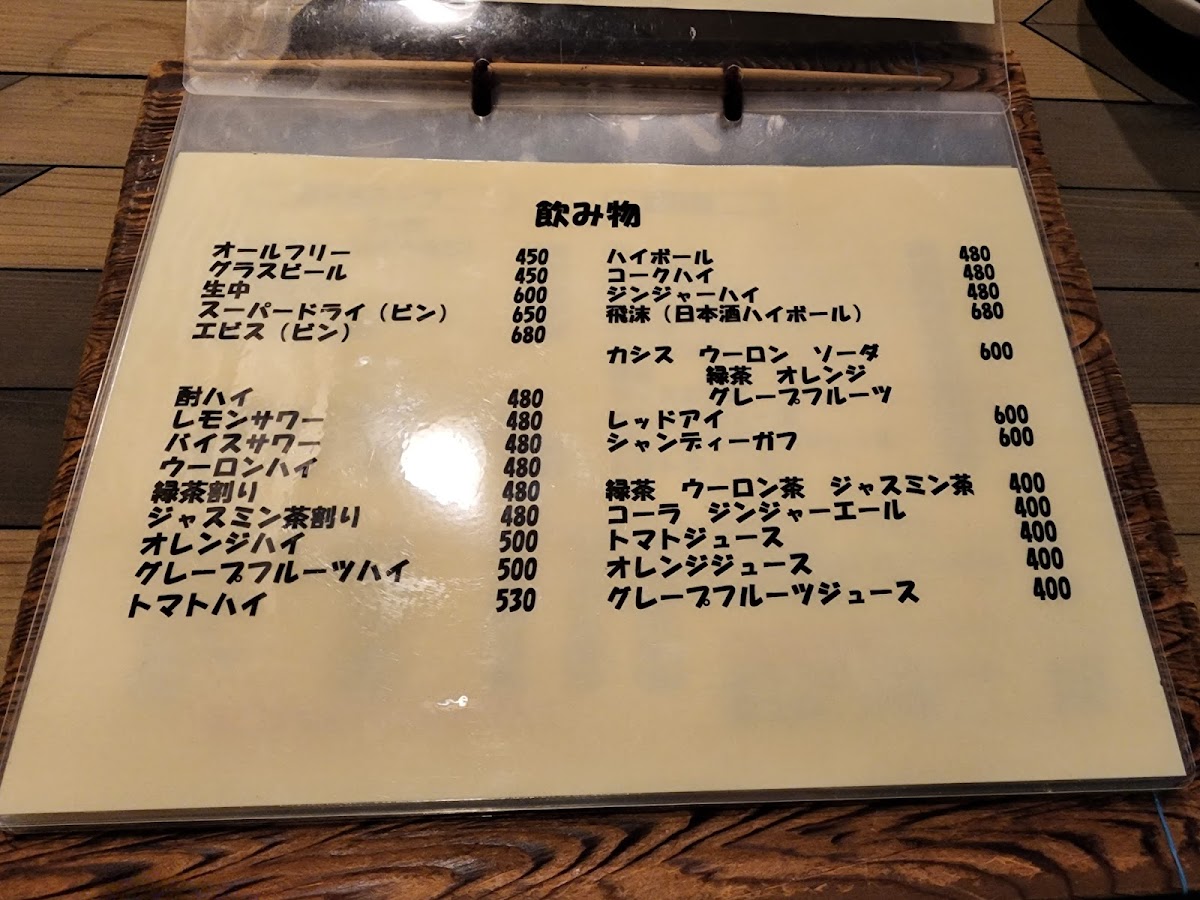 飲み物
オールフリー 450
グラスビール 450
生中 600
スーパードライ（ビン） 650
エビス（ビン） 680
酎ハイ 480
レモンサワー 480
バイスサワー 480
ウーロンハイ 480
緑茶割り 480
ジャスミン茶割り 480
オレンジハイ 500
グレープフルーツハイ 500
トマトハイ 530
ハイボール 480
コークハイ 480
ジンジャーハイ 480
飛沫（日本酒ハイボール） 680
カシス ウーロン ソーダ 600
緑茶 オレンジ
グレープフルーツ
レッドアイ 600
シャンディーガフ 600
緑茶 ウーロン茶 ジャスミン茶 400
コーラ ジンジャーエール 400
トマトジュース 400
オレンジジュース 400
グレープフルーツジュース 400